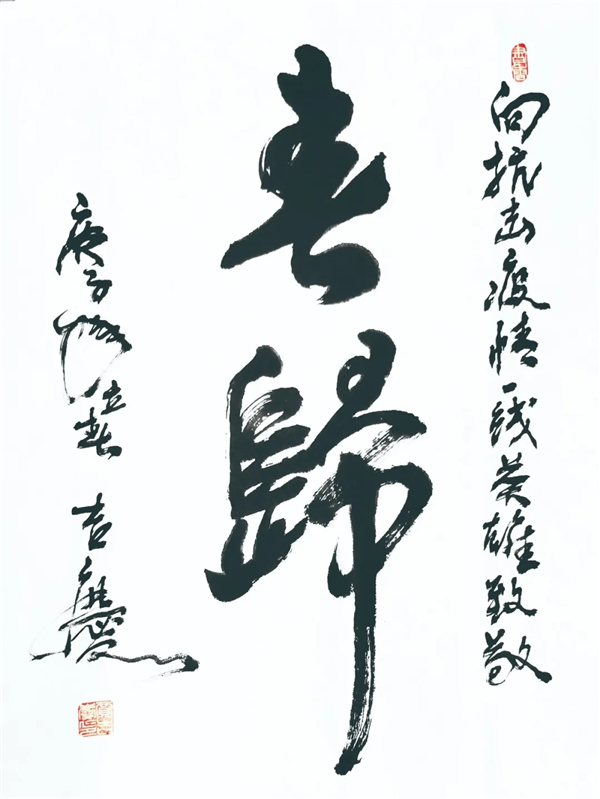 向抗击疫情一线英雄致敬
春歸
庚子 立春 吉慶